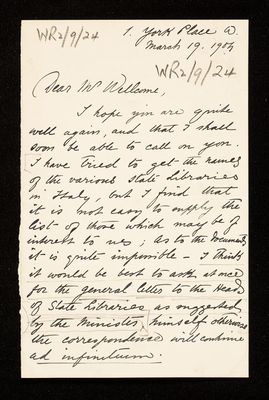 WR2/9/24
1. York Place W.
March 19. 1904
WR2/9/24
Dear Mr Wellcome,
I hope you are quite
well again, and that I shall
soon be able to call on you.
I have tried to get the names
of the various State Libraries
in Italy, but I find that
it is not easy to supply the
list of those which may be of
interest to us; As to the Documents,
it is quite impossible - I think
it would be best to ask at once
for the general letter to the Heads
of State Libraries as suggested
by the Minister himself otherwise
the correspondence will continue
ad infinitum.